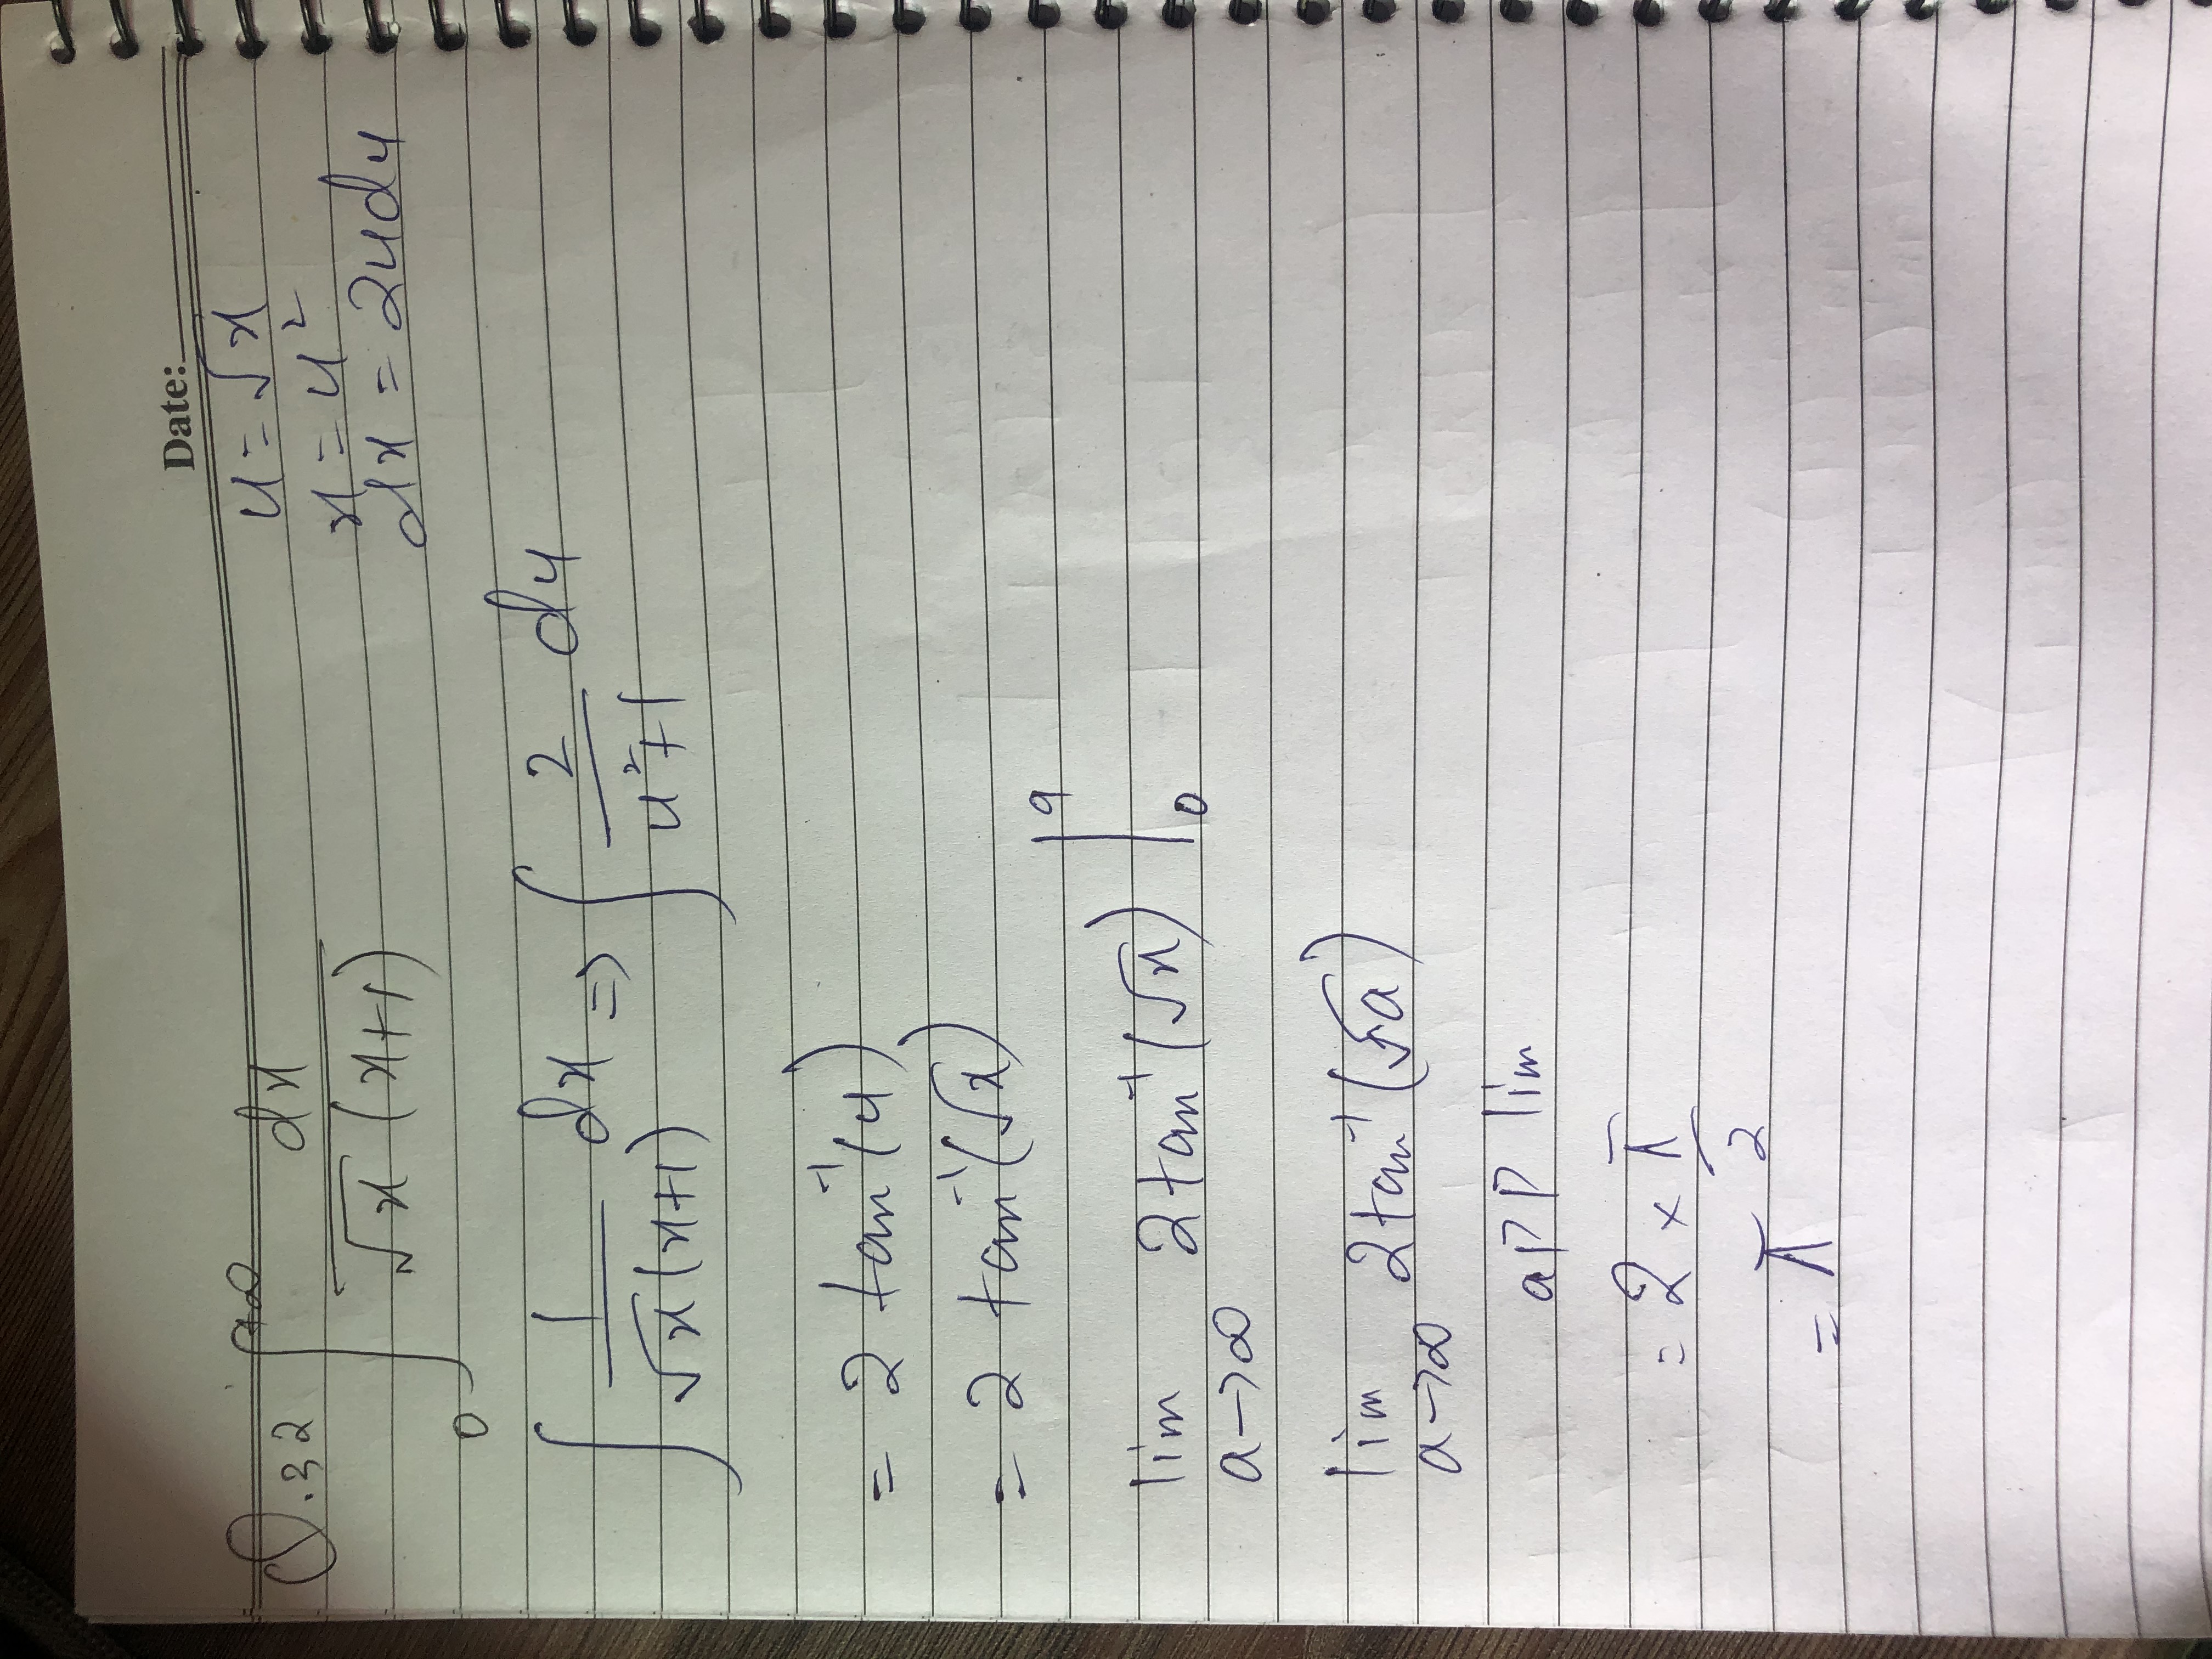 Date:
Q.32 ∫₀^{+∞} dx / (√x (x+1))
u = √x
x = u²
dx = 2u du
∫ 1 / (√x(x+1)) dx ⇒ ∫ 2 / (u²+1) du
= 2 tan⁻¹(u)
= 2 tan⁻¹(√x)
lim a→∞ 2tan⁻¹(√x) |₀^a
lim a→∞ 2tan⁻¹(√a)
app lim
= 2 × π/2
= π